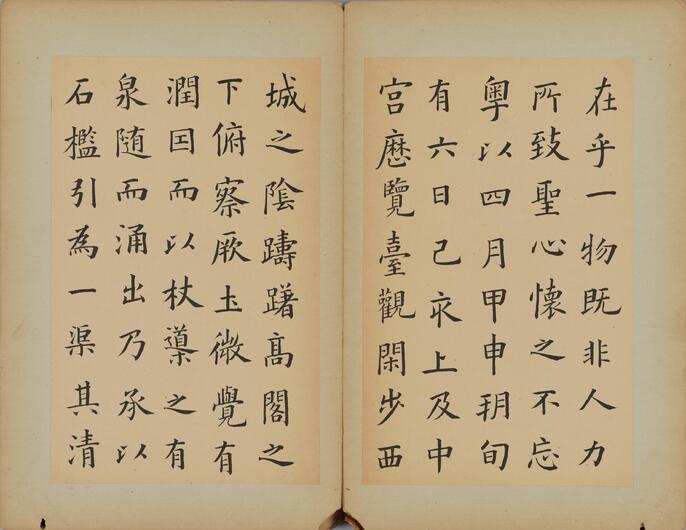 在乎一物既非人力
所致聖心懷之不忘
粵以四月甲申朔旬
有六日己亥上及中
宮歷覽臺觀閑步西
城之陰躊躇高閣之
下俯察厥土微覺有
潤因而以杖導之有
泉随而涌出乃承以
石檻引為一渠其清